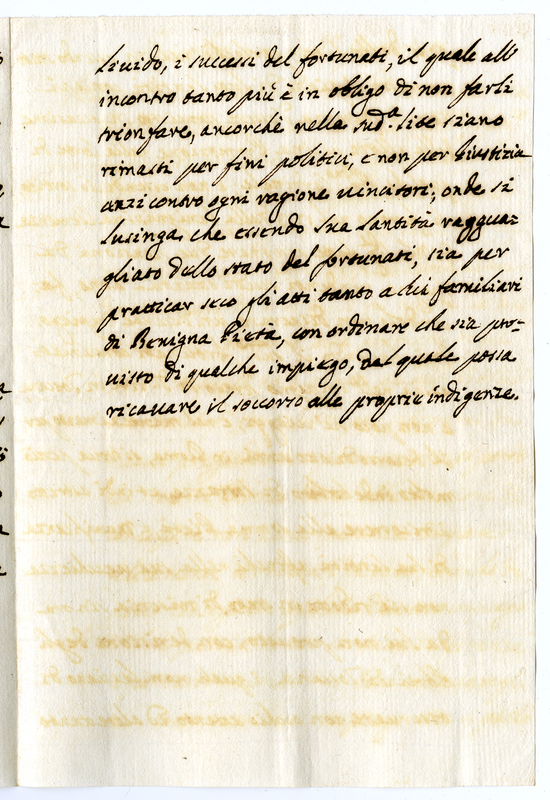 liuido, i successi del fortunati, il quale all'
incontro tanto più è in obligo di non farli
trionfare, ancorchè nella sud.ª lite siano
rimasti per fini politici, e non per giustizia
anzi contro ogni ragione uincitori; onde si
lusinga, che essendo sua santità raggua:
gliato dello stato del fortunati, sia per
pratticar seco gli atti tanto a lui familiari
di Benigna Pietà, con ordinare che sia pro=
uisto di qualche impiego, dal quale possa
ricauare il soccorso alle proprie indigenze.